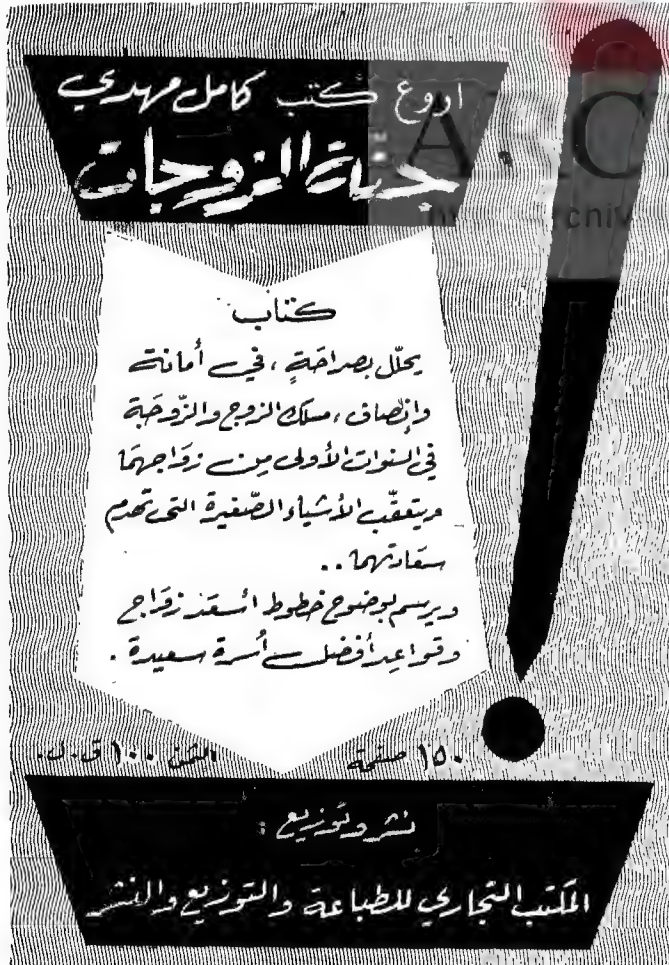 اروع كتب كامل مهدي
جنّة الزوجات
كتاب
يحلّل بصراحَةٍ ، في أمانة
وإنصاف ، مسلك الزوج والزّوجَة
في السنوات الأولى مِن زوَاجهمَا
ويتعقّب الأشياء الصّغيرة التي تهدم
سعَادتهما ..
ويرسم بوضوح خطوط أسعَد زوَاج
وقواعِد أفضل أسرة سعيدة .
١٥٠ صفحة الثمن ١٠٠ ق.ل.
نشر وتوزيع :
المكتب التجاري للطباعة والتوزيع والنشر